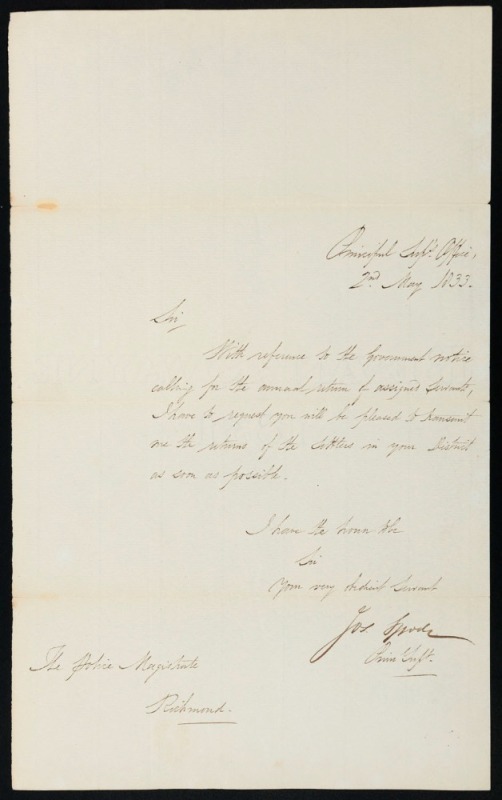 Principal Supt. Office,
2nd May 1833.
Sir,
With reference to the Government notice
calling for the annual return of assigned servants,
I have to request you will be pleased to transmit
me the returns of the settlers in your District
as soon as possible.
I have the honor to be
Sir
Your very obedient Servant
Jos. Spode
Prin. Supt.
The Police Magistrate
Richmond.